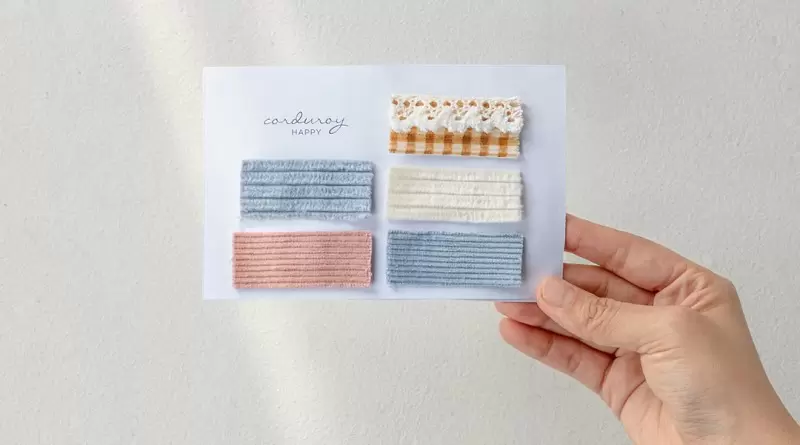 corduroy
HAPPY